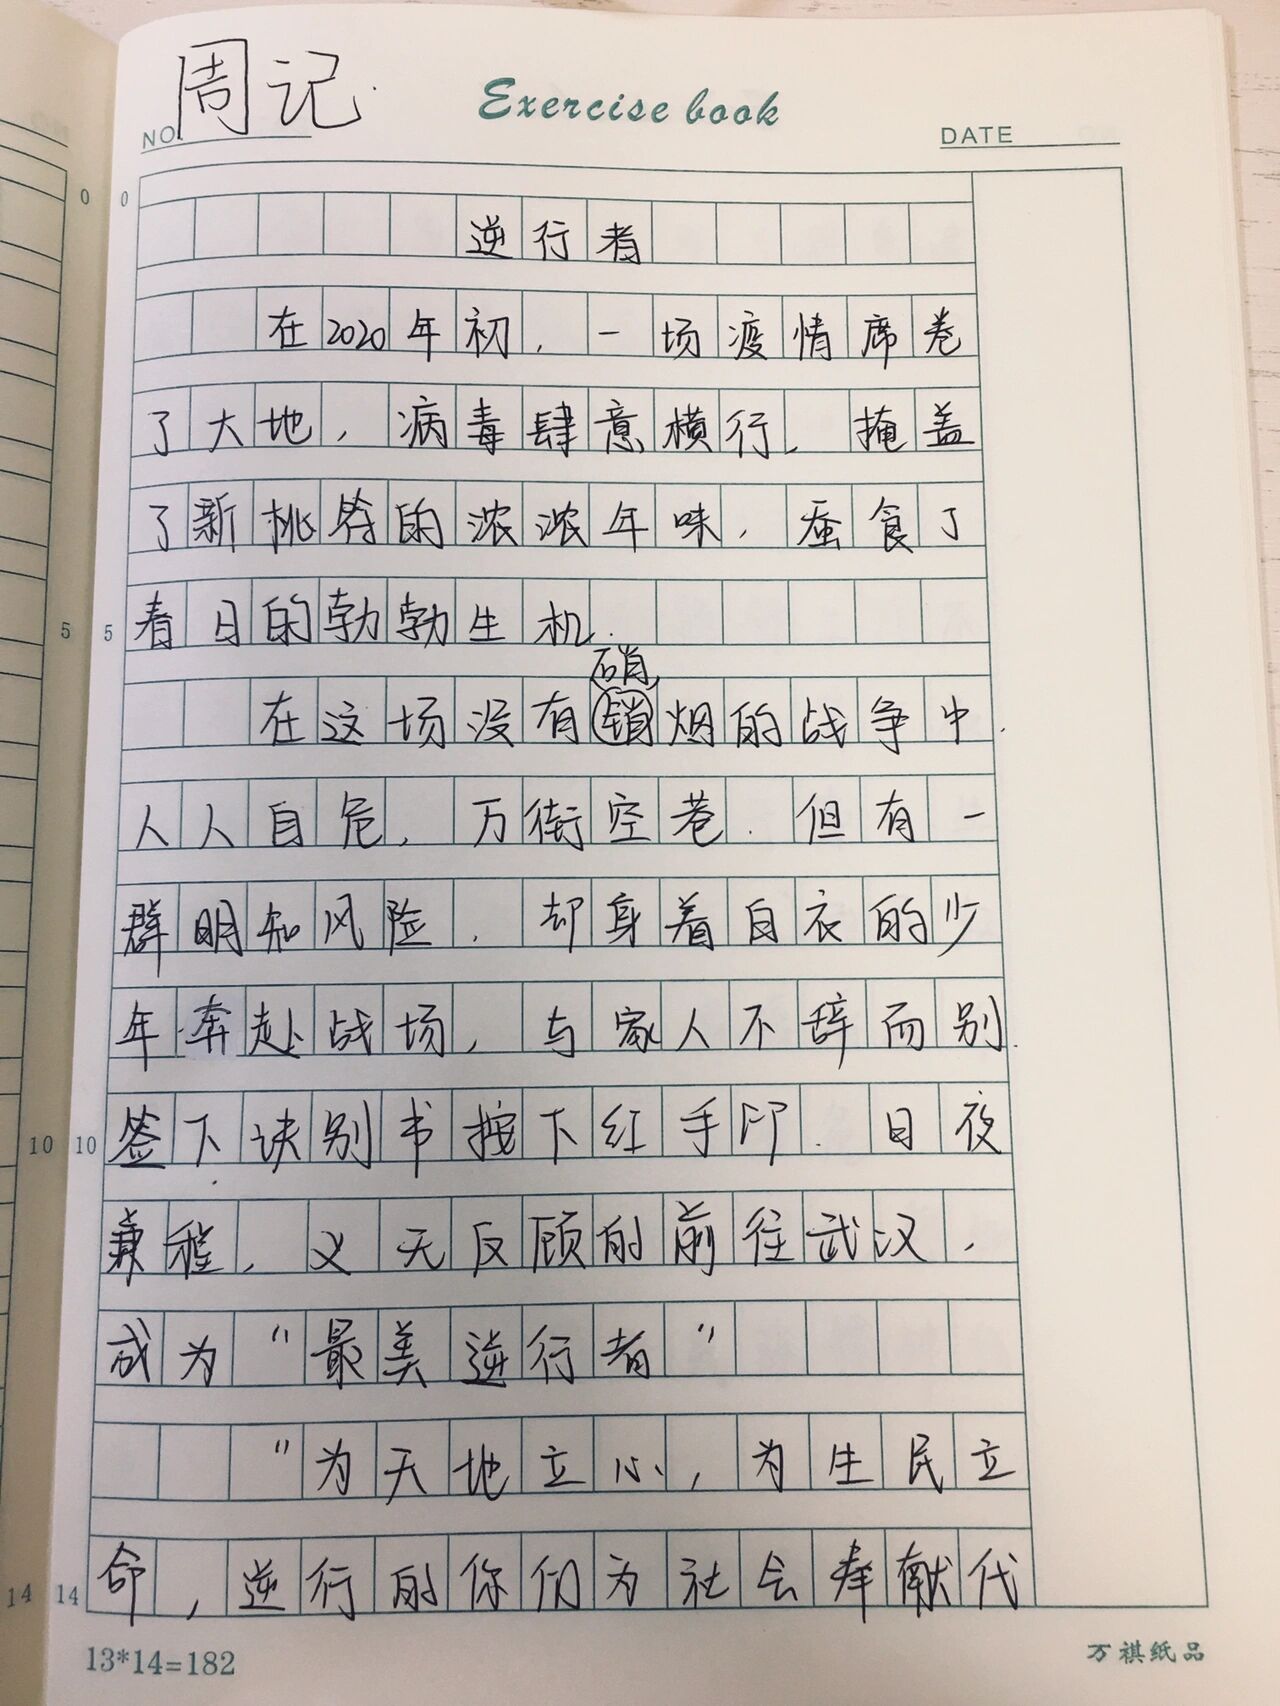 周记
Exercise book
NO.
DATE
0 0
逆行者
在2020年初，一场疫情席卷
了大地，病毒肆意横行，掩盖
了新桃符的浓浓年味，蚕食了
5 5 春日的勃勃生机.
硝
在这场没有销烟的战争中，
人人自危，万街空巷.但有一
群明知风险，却身着白衣的少
年奔赴战场，与家人不辞而别，
10 10 签下诀别书按下红手印.日夜
兼程，义无反顾的前往武汉，
成为“最美逆行者”
“为天地立心，为生民立
14 14 命，逆行的你们为社会奉献代
13*14=182
万祺纸品